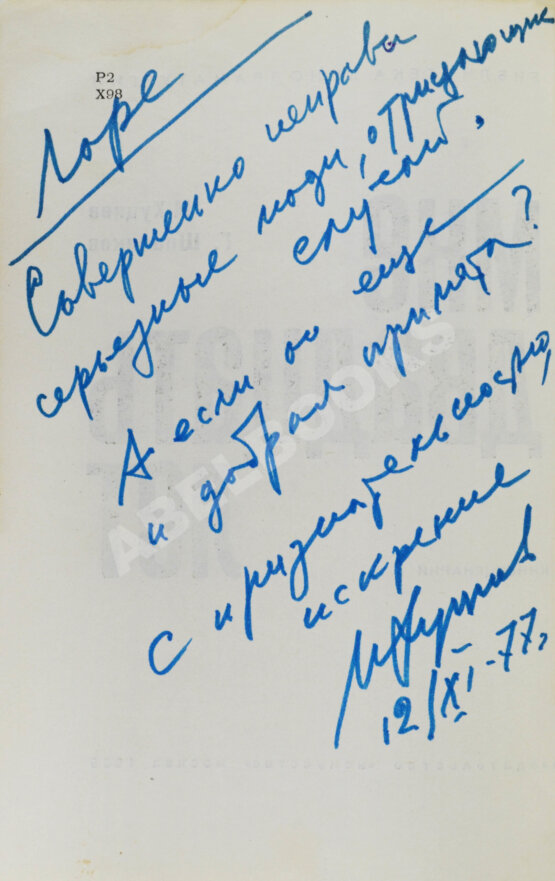 Р2
Х98
Лоре
Совершенно неправы
серьезные люди, отрицающие
случай.
А если он еще
и добрая примета?
С признательностью,
искренне
МХуциев
12/XI-77.
ABELBOOKS